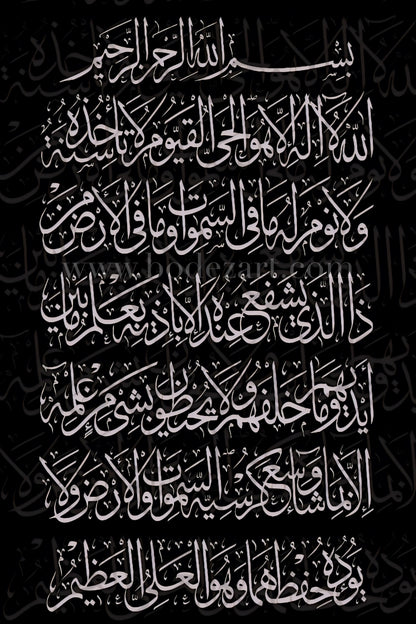 بِسْمِ اللهِ الرَّحْمٰنِ الرَّحِيمِ
اللهُ لَا إِلٰهَ إِلَّا هُوَ الْحَيُّ الْقَيُّومُ لَا تَأْخُذُهُ سِنَةٌ
وَلَا نَوْمٌ لَهُ مَا فِي السَّمٰوَاتِ وَمَا فِي الْأَرْضِ مَنْ
ذَا الَّذِي يَشْفَعُ عِنْدَهُ إِلَّا بِإِذْنِهِ يَعْلَمُ مَا بَيْنَ
أَيْدِيهِمْ وَمَا خَلْفَهُمْ وَلَا يُحِيطُونَ بِشَيْءٍ مِنْ عِلْمِهِ
إِلَّا بِمَا شَاءَ وَسِعَ كُرْسِيُّهُ السَّمٰوَاتِ وَالْأَرْضَ وَلَا
يَئُودُهُ حِفْظُهُمَا وَهُوَ الْعَلِيُّ الْعَظِيمُ
www.bodezart.com